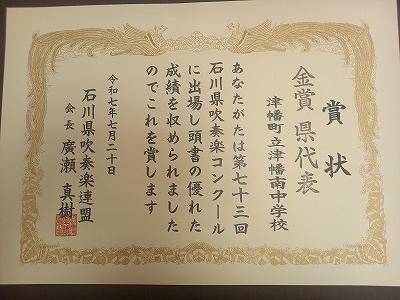 賞状
金賞 県代表
津幡町立津幡南中学校
あなたがたは第七十三回
石川県吹奏楽コンクール
に出場し頭書の優れた
成績を収められました
のでこれを賞します
令和七年七月二十日
石川県吹奏楽連盟
会長 廣瀬真樹